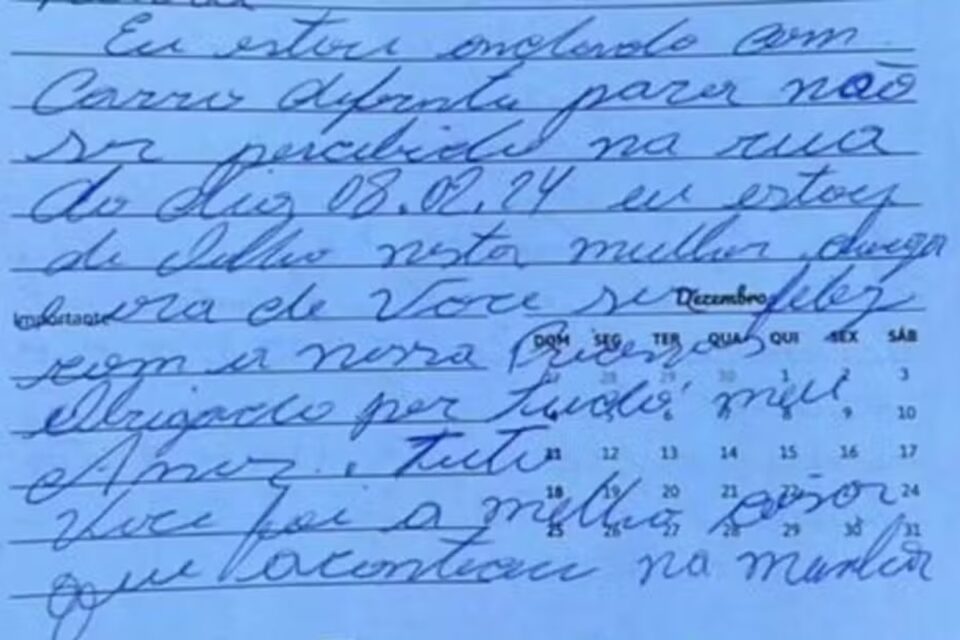 Eu estou andando com
Carro diferente para não
ser percebido na rua
do dia 08.02.24 eu estou
de olho nesta mulher, chega
ora de voce ser feliz
Importante
Dezembro
com a nossa Princesas
DOM SEG TER QUA QUI SEX SÁB
27 28 29 30 1 2 3
Obrigado por tudo meu
4 5 6 7 8 9 10
Amor. tuto
11 12 13 14 15 16 17
Voce foi a melhor coisa
18 19 20 21 22 23 24
25 26 27 28 29 30 31
que aconteceu na minha